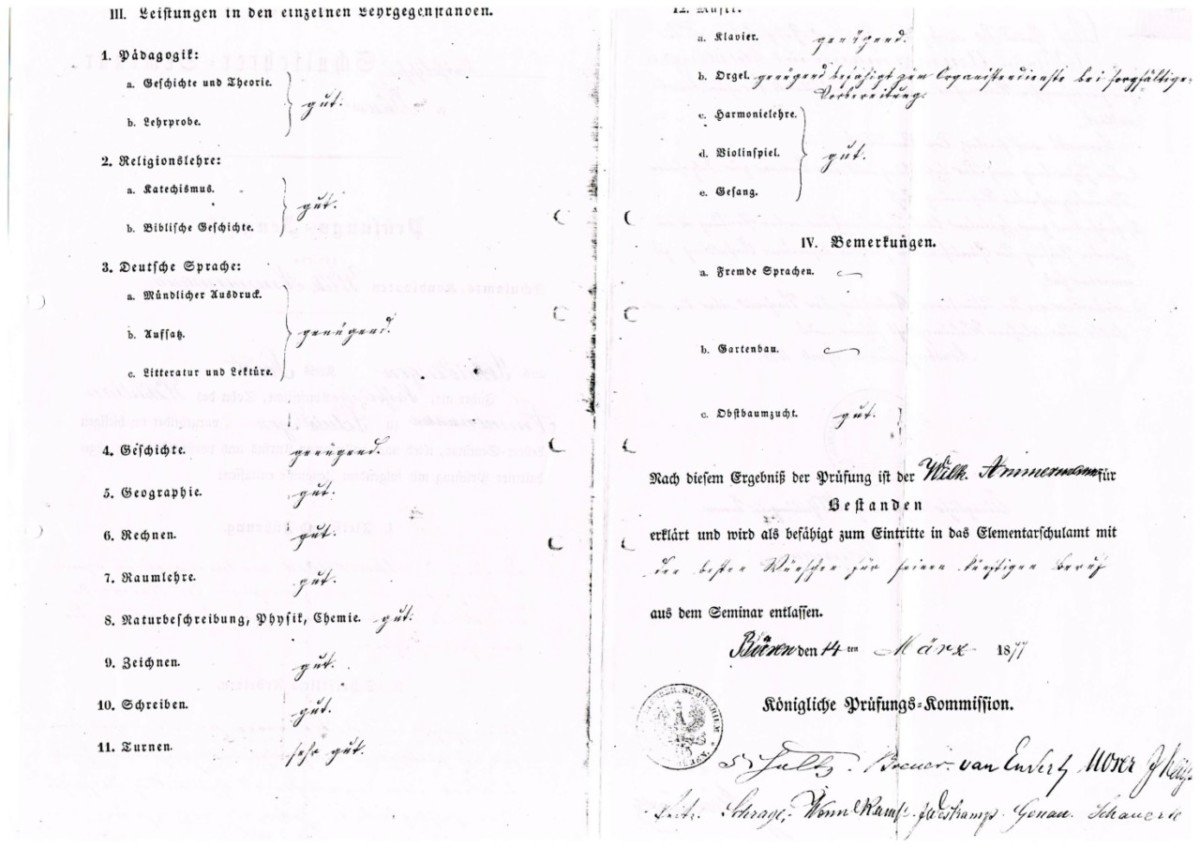 III. Leistungen in den einzelnen Lehrgegenständen.
1. Pädagogik:
a. Geschichte und Theorie.
gut.
b. Lehrprobe.
2. Religionslehre:
a. Katechismus.
gut.
b. Biblische Geschichte.
3. Deutsche Sprache:
a. Mündlicher Ausdruck.
b. Aufsatz. genügend.
c. Litteratur und Lektüre.
4. Geschichte. genügend.
5. Geographie. gut.
6. Rechnen. gut.
7. Raumlehre. gut.
8. Naturbeschreibung, Physik, Chemie. gut.
9. Zeichnen. gut.
10. Schreiben. gut.
11. Turnen. sehr gut.
12. Musik.
a. Klavier. genügend.
b. Orgel. genügend befähigt zum Organistendienste bei sorgfältiger
Vorbereitung.
c. Harmonielehre.
d. Violinspiel. gut.
e. Gesang.
IV. Bemerkungen.
a. Fremde Sprachen. —
b. Gartenbau. —
c. Obstbaumzucht. gut.
Nach diesem Ergebniß der Prüfung ist der Wilh. Ammermann für
Bestanden
erklärt und wird als befähigt zum Eintritte in das Elementarschulamt mit
den besten Wünschen für seinen künftigen Beruf
aus dem Seminar entlassen.
Büren den 14ten März 1877
Königliche Prüfungs-Kommission.
Schultz. Breuer. van Endert,
Schrage. Genau.